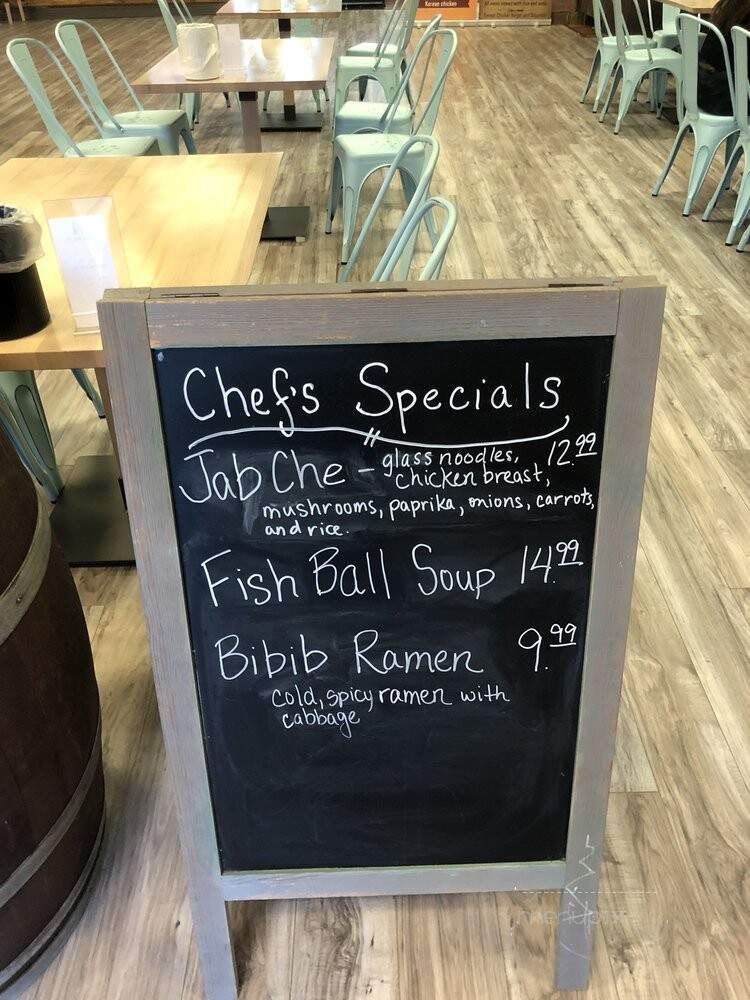 Korean chicken
Chef's Specials
Jab Che - glass noodles, 12.99
chicken breast,
mushrooms, paprika, onions, carrots,
and rice.
Fish Ball Soup 14.99
Bibib Ramen 9.99
cold, spicy ramen with
cabbage
menupix